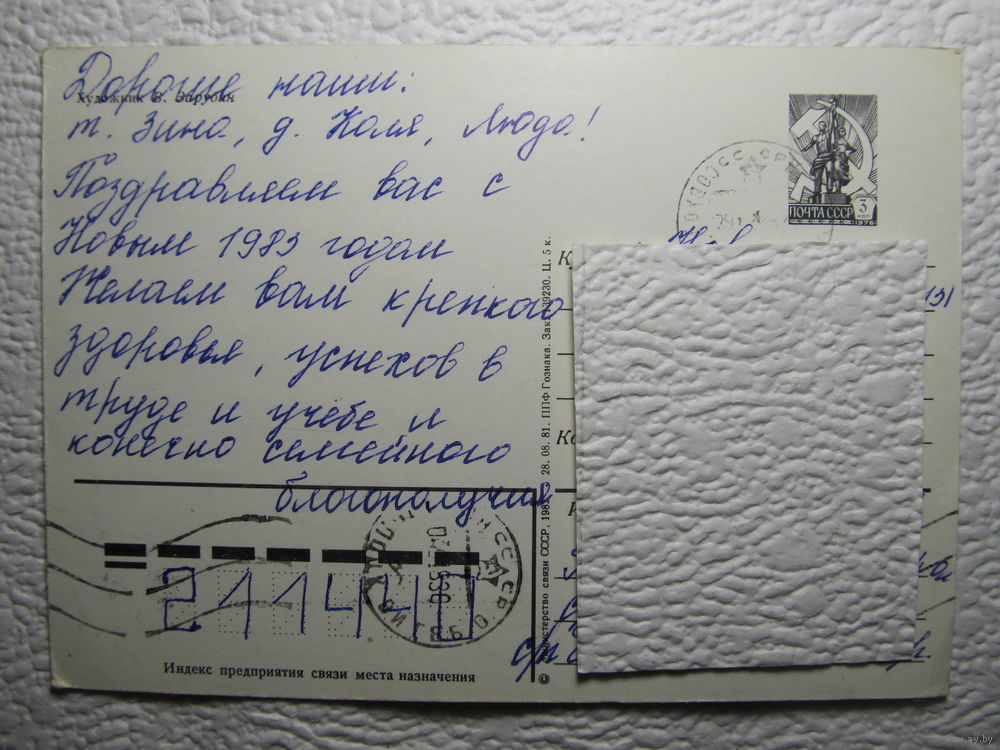 Дорогие наши:
Художник В. Зарубин
т. Зина, д. Коля, Люда!
Поздравляем вас с
Новым 1983 годом
Желаем вам крепкого
здоровья, успехов в
труде и учебе и
конечно семейного
благополучия
ПОЧТА СССР
3
КОП
1976
К
131
Министерство связи СССР, 198 28. 08. 81. ППФ Гознака. Зак. 39230. Ц. 5 к.
211440
Индекс предприятия связи места назначения
www.ay.by